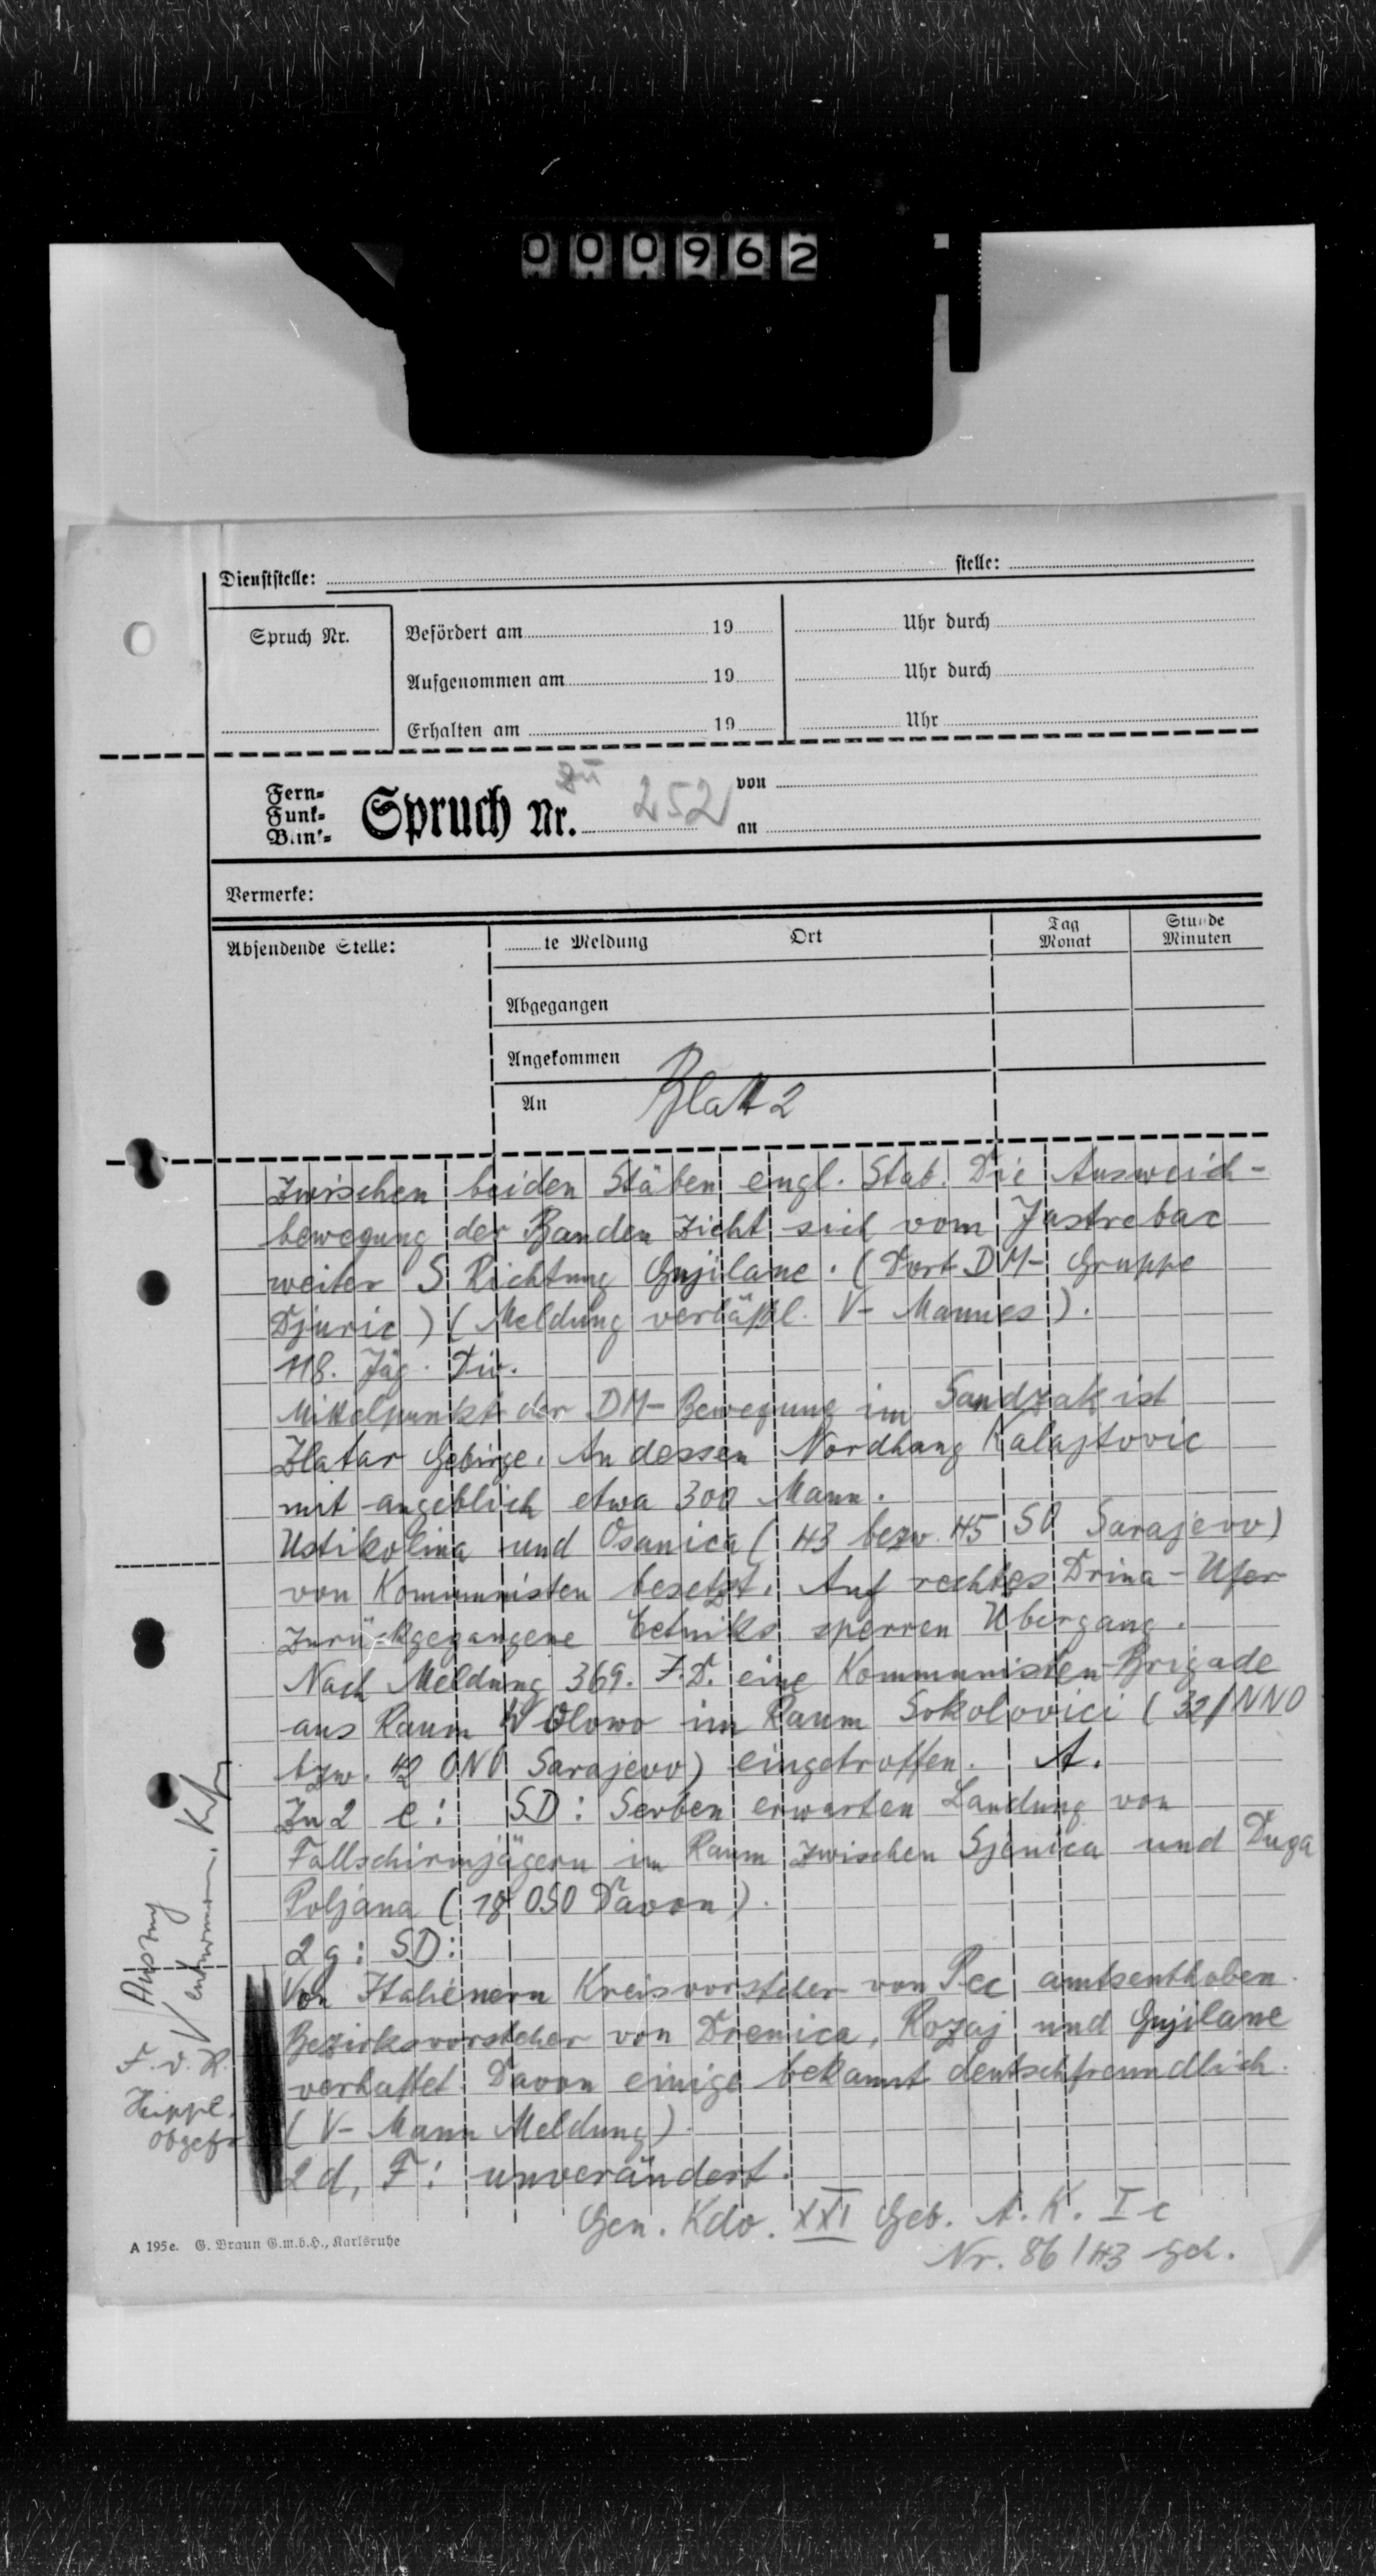 000962
Dienststelle: stelle:
Spruch Nr. Befördert am 19 Uhr durch
Aufgenommen am 19 Uhr durch
Erhalten am 19 Uhr
Fern-
Funk-
Blink-
Spruch Nr. zu 252 von
an
Vermerke:
Absendende Stelle: te Meldung Ort Tag Monat Stunde Minuten
Abgegangen
Angekommen
An Blatt 2
Zwischen beiden Stäben engl. Stab. Die Ausweich-
bewegung der Banden zieht sich vom Jastrebac
weiter S Richtung Gnjilane. (Dort DM- Gruppe
Djuric) (Meldung verläßl. V- Mannes).
118. Jäg. Div.
Mittelpunkt der DM- Bewegung im Sandzak ist
Zlatar Gebirge. An dessen Nordhang Kalajtovic
mit angeblich etwa 300 Mann.
Ustikolina und Osanica (43 bezw. 45 SO Sarajevo)
von Kommunisten besetzt. Auf rechtes Drina- Ufer
zurückgegangene Cetniks sperren Übergang.
Nach Meldung 369. J.D. eine Kommunisten-Brigade
aus Raum W Olowo im Raum Sokolovici (32/NNO
bzw. 42 ONO Sarajevo) eingetroffen. A.
Zu 2 e: SD: Serben erwarten Landung von
Fallschirmjägern im Raum zwischen Sjenica und Duga
Poljana (18 OSO Davon).
2 g: SD:
Von Italienern Kreisvorsteher von Pec amtsenthoben.
Bezirksvorsteher von Drenica, Rozaj und Gnjilane
verhaftet. Davon einige bekannt deutschfreundlich.
(V- Mann Meldung).
2 d, F: unverändert.
Gen. Kdo. XXI Geb. A. K. Ic
Nr. 86/43 geh.
Auszug
entnommen.
F. d. R.
Obgefr.
A 195e. G. Braun G.m.b.H., Karlsruhe